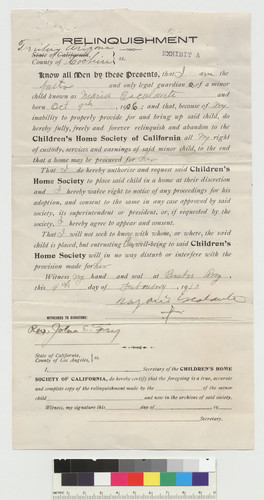 RELINQUISHMENT
EXHIBIT A
State of California
County of Cochise ss.
Know all Men by these Presents, that I am the
and only legal guardian of a minor
child known as Maria Escalante and
born Oct 9th 1906; and that, because of my
inability to properly provide for and bring up said child, do
hereby fully, freely and forever relinquish and abandon to the
Children's Home Society of California all my right
of custody, services and earnings of said minor child, to the end
that a home may be procured for her
That I do hereby authorize and request said Children's
Home Society to place said child in a home at their discretion
and I hereby waive right to notice of any proceedings for his
adoption, and consent to the same in any case approved by said
society, its superintendent or president, or, if requested by the
society, I hereby agree to appear and consent.
That I will not seek to know with whom, or where, the said
child is placed, but entrusting well-being to said Children's
Home Society will in no way disturb or interfere with the
provision made for her
Witness my hand and seal at
this 9th day of February
Escalante
WITNESSES TO SIGNATURE:
Rev. John E.
State of California,
County of Los Angeles, ss.
I, Secretary of the CHILDREN'S HOME
SOCIETY OF CALIFORNIA, do hereby certify that the foregoing is a true, accurate and
complete copy of the relinquishment made by the of the minor
child and now in the archives of said society.
Witness, my signature this day of 19
Secretary.